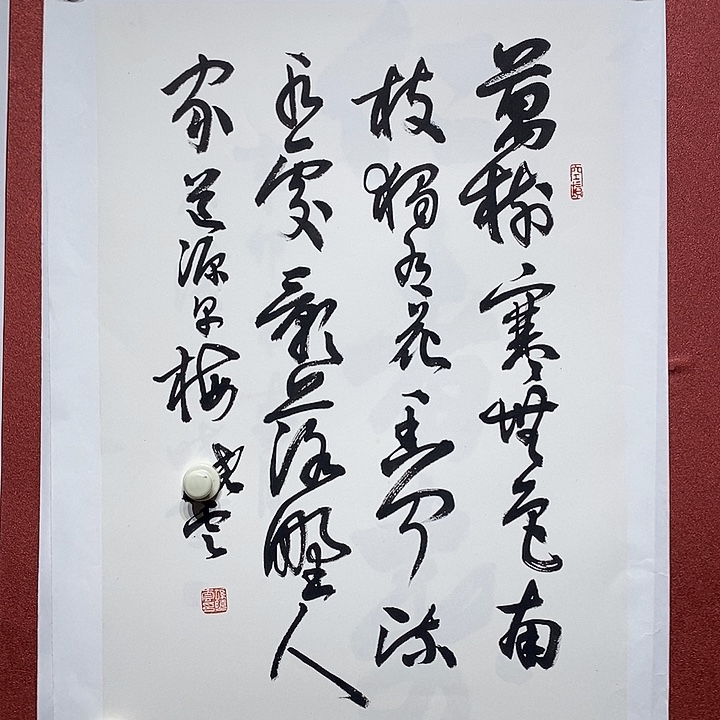 萬樹寒無色南
枝獨有花香聞流
水處影落野人
家 道源早梅